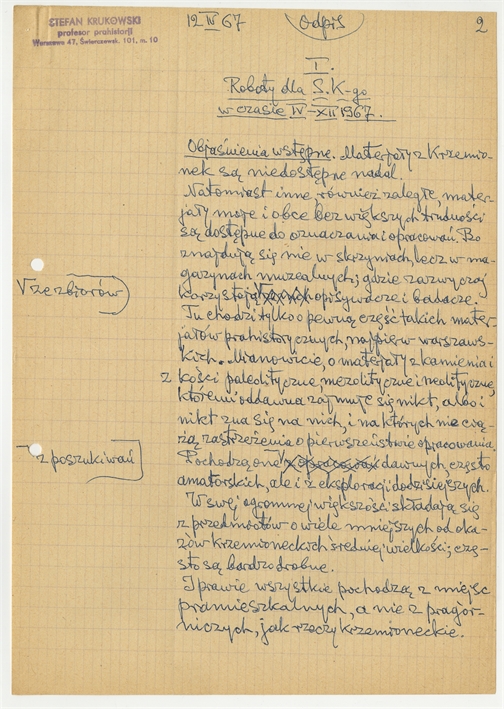 STEFAN KRUKOWSKI
profesor prahistorji
Warszawa 47, Świerczewsk. 101, m. 10
12 IV 67
Odpis
2
I.
Roboty dla S. K-go
w czasie IV-XII 1967.
Objaśnienia wstępne. Materjały z Krzemio-
nek są niedostępne nadal.
Natomiast inne, również zaległe, mater-
jały moje i obce bez większych trudności
są dostępne do oznaczania i opracowań. Bo
znajdują się nie w skrzyniach, lecz w ma-
gazynach muzealnych; gdzie zazwyczaj
V ze zbiorów
korzystają opisywacze i badacze.
Tu chodzi tylko o pewną część takich mater-
jałów prahistorycznych, najpierw warszaws-
kich. Mianowicie, o materjały z kamienia i
z kości paleolityczne, mezolityczne i neolityczne,
któremi oddawna zajmuje się nikt, albo i
nikt zna się na nich, i na których nie cią-
żą zastrzeżenia o pierwszeństwie opracowania.
z poszukiwań
Pochodzą one dawnych, często
amatorskich, ale i z eksploracji dodzisiejszych.
W swej ogromnej większości składają się
z przedmiotów o wiele mniejszych od oka-
zów krzemioneckich średniej wielkości; czę-
sto są bardzo drobne.
I prawie wszystkie pochodzą z miejsc
pramieszkalnych, a nie z pragór-
niczych, jak rzeczy krzemioneckie.